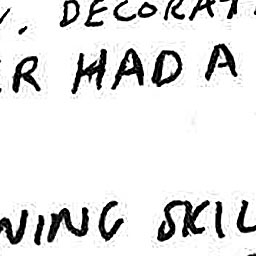 . DECORAT
R HAD A
NING SKIL